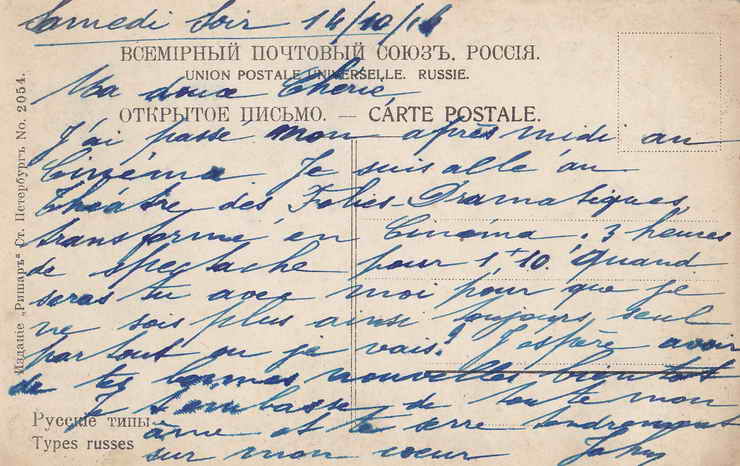 Samedi Soir 14/10/16
ВСЕМІРНЫЙ ПОЧТОВЫЙ СОЮЗЪ. РОССІЯ.
UNION POSTALE UNIVERSELLE. RUSSIE.
Ma douce Chérie
ОТКРЫТОЕ ПИСЬМО. — CARTE POSTALE.
J'ai passé mon après midi au
Cinéma. Je suis allé au
théâtre des Folies-Dramatiques,
transformé en Cinéma. 3 heures
de spectacle pour 1f10. Quand
seras tu avec moi pour que je
ne sois plus ainsi toujours seul
partout ou je vais! J'espère avoir
de tes bonnes nouvelles bientot
Je t'embrasse de toute mon
âme et te serre tendrement
sur mon coeur Johny
Русскіе типы.
Types russes
Изданіе „Ришаръ“ Ст. Петербургъ. No. 2054.